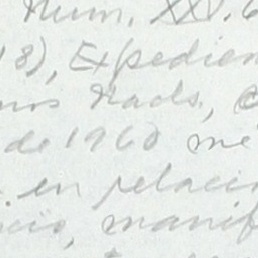 Núm. XXV.
8), Expedien
nos Trads.,
de 1960 mé
en relació
cio, manif